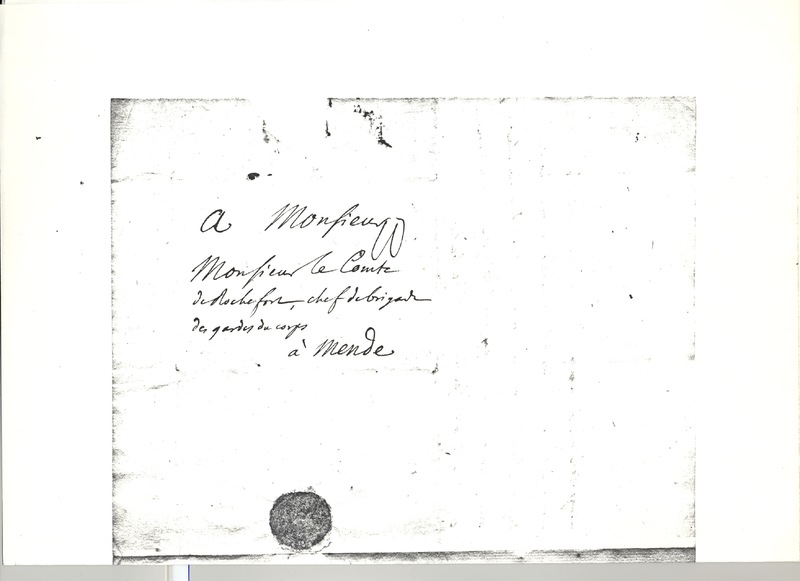 A Monsieur
Monsieur le Comte
de Rochefort, chef de brigade
des gardes du corps
à Mende